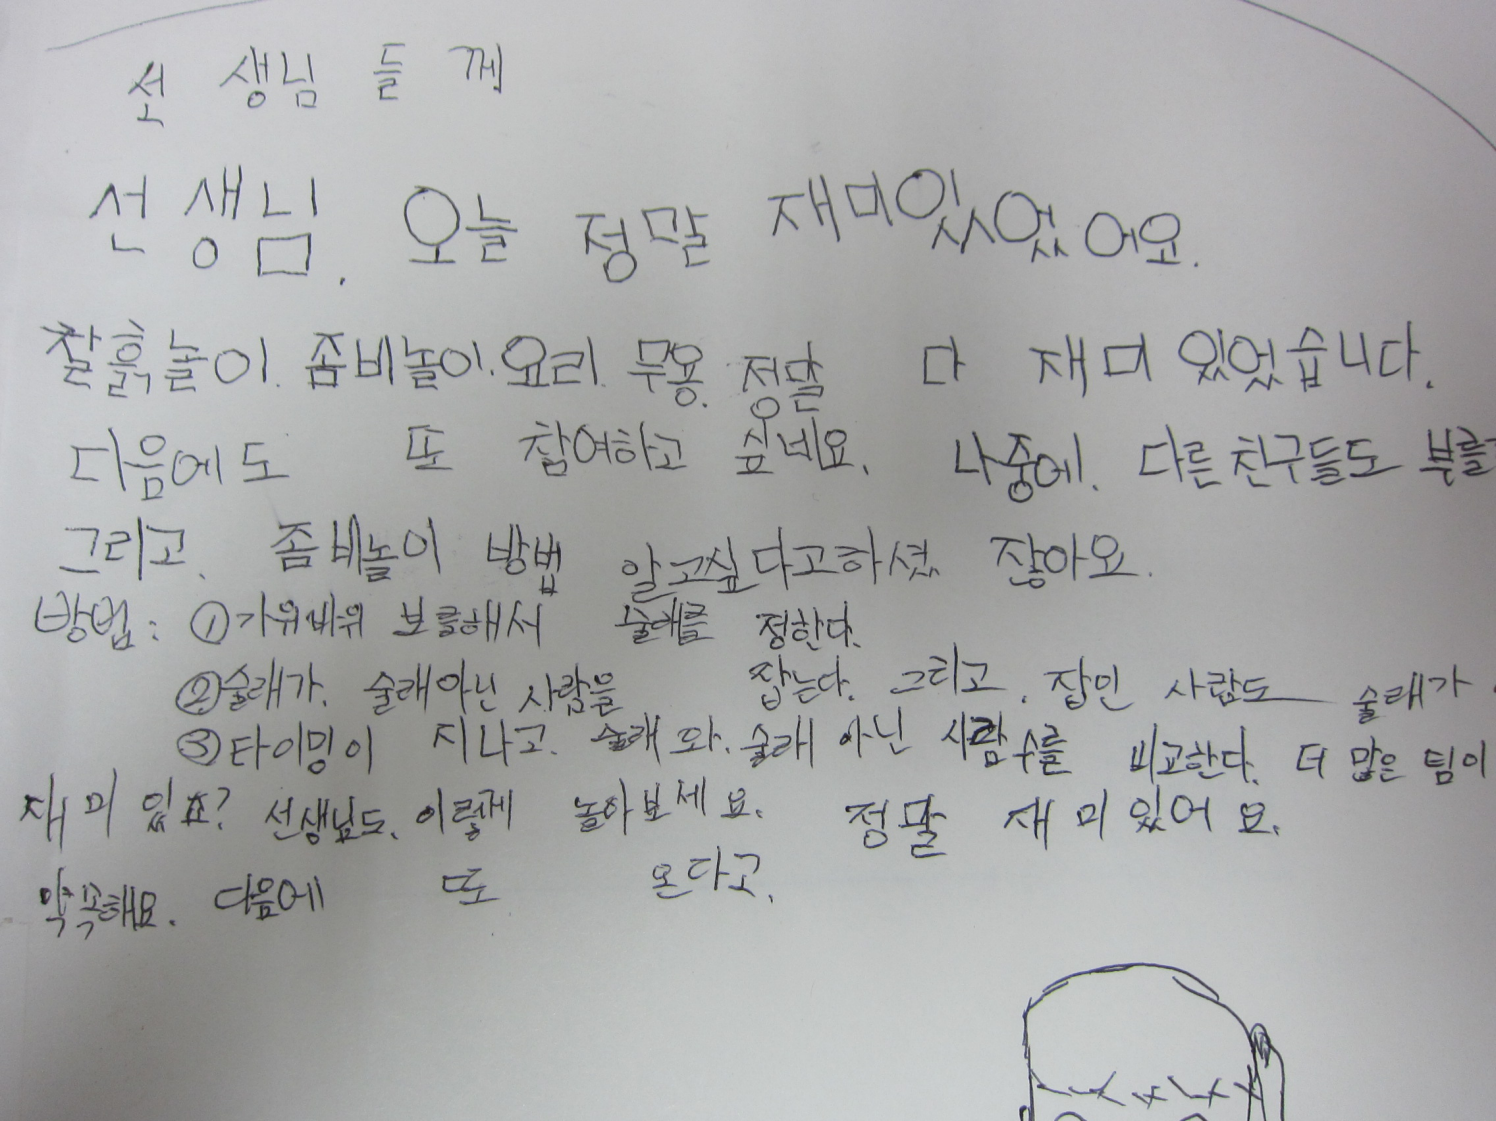 선생님들께
선생님. 오늘 정말 재미있었어요.
찰흙놀이. 좀비놀이. 요리. 무용. 정말 다 재미있었습니다.
다음에도 또 참여하고 싶네요. 나중에. 다른친구들도 부를
그리고. 좀비놀이 방법 알고싶다고하셨 잖아요.
방법: ①가위바위 보를해서 술래를 정한다.
②술래가. 술래아닌 사람을 잡는다. 그리고. 잡인 사람도 술래가
③타이밍이 지나고. 술래 와. 술래 아닌 사람수를 비교한다. 더 많은 팀이
재미 있죠? 선생님도. 이렇게 놀아보세요. 정말 재미있어요.
약속해요. 다음에 또 온다고.